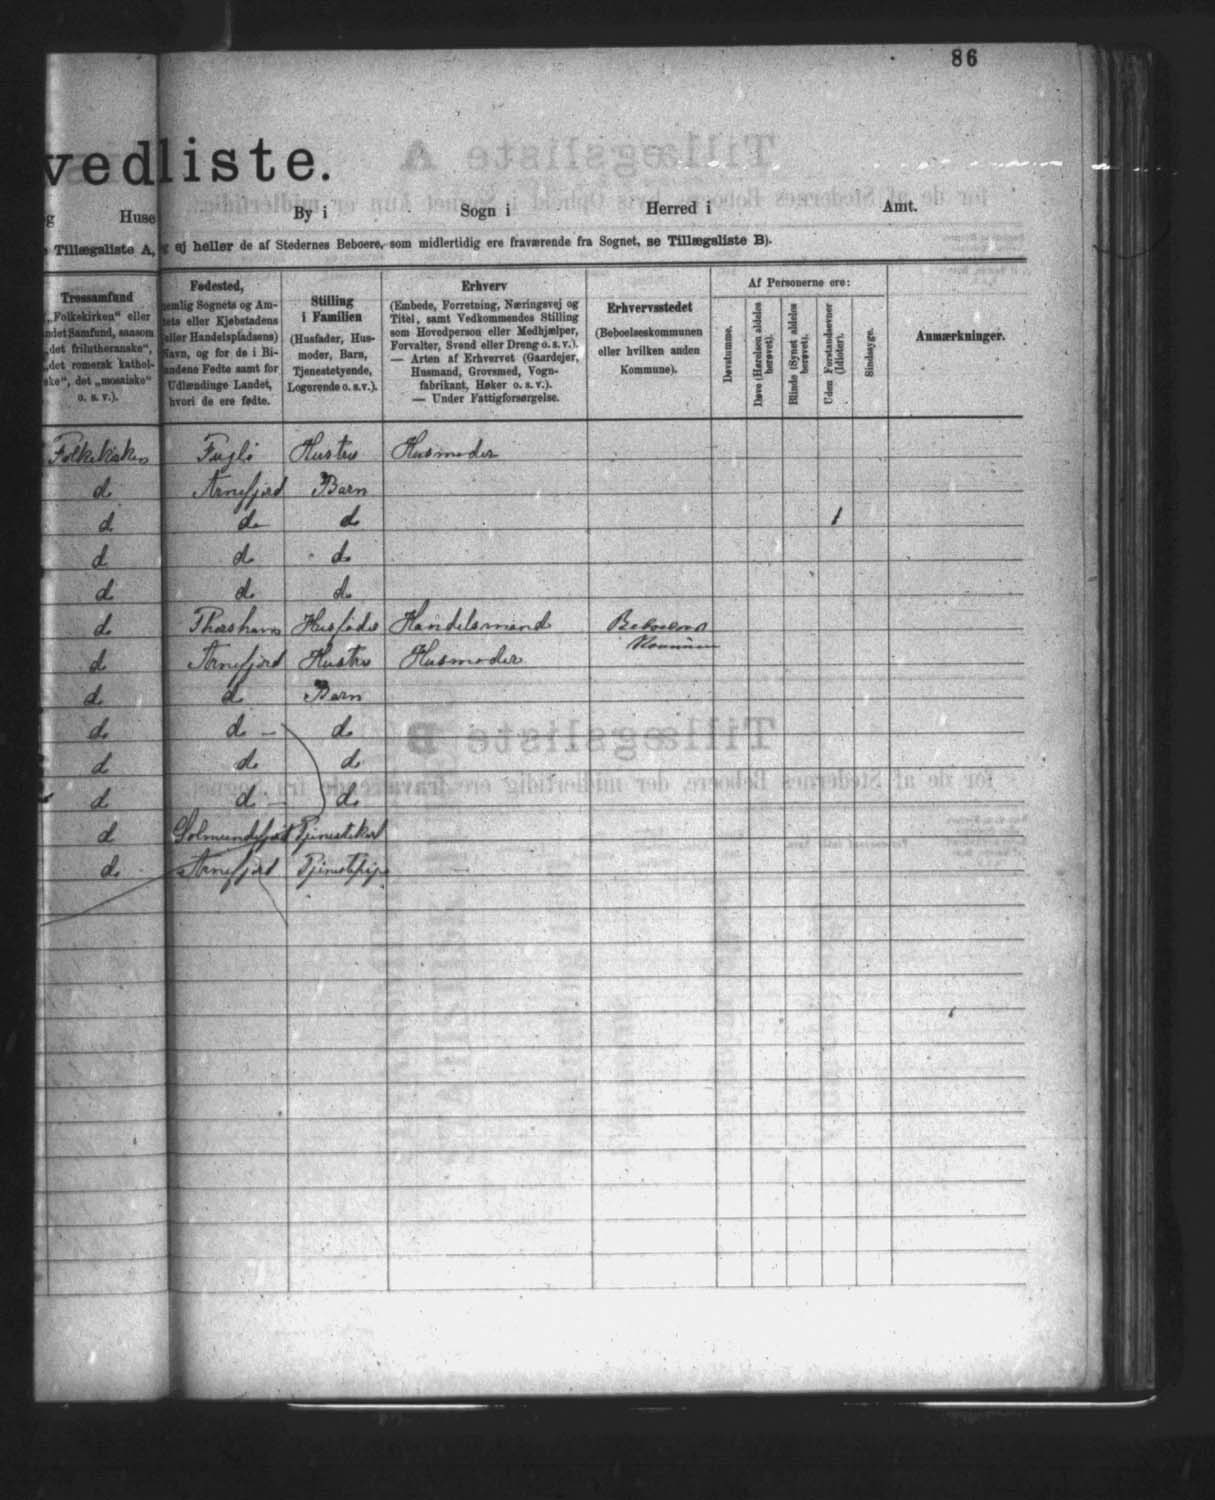 86
vedliste.
g Huse By i Sogn i Herred i Amt.
Tillægsliste A, ej heller de af Stedernes Beboere, som midlertidig ere fraværende fra Sognet, se Tillægsliste B).
Trossamfund
(„Folkekirken“ eller
andet Samfund, saasom
„det frilutheranske“,
„det romersk kathol-
ske“, det „mosaiske“
o. s. v.).
Fødested,
nemlig Sognets og Am-
tets eller Kjøbstadens
(eller Handelspladsens)
Navn, og for de i Bi-
landene Fødte samt for
Udlændinge Landet,
hvori de ere fødte.
Stilling
i Familien
(Husfader, Hus-
moder, Barn,
Tjenestetyende,
Logerende o. s. v.).
Erhverv
(Embede, Forretning, Næringsvej og
Titel, samt Vedkommendes Stilling
som Hovedperson eller Medhjælper,
Forvalter, Svend eller Dreng o. s. v.).
— Arten af Erhvervet (Gaardejer,
Husmand, Grovsmed, Vogn-
fabrikant, Høker o. s. v.).
— Under Fattigforsørgelse.
Erhvervsstedet
(Beboelseskommunen
eller hvilken anden
Kommune).
Af Personerne ere:
Døvstumme.
Døve (Hørelsen aldeles
berøvet).
Blinde (Synet aldeles
berøvet).
Uden Forstandsevner
(Idioter).
Sindssyge.
Anmærkninger.
Folkekirken Fuglø Hustru Husmoder
d. Arnefjord Barn
d. d. d. 1
d. d. d.
d. d. d.
d. Thorshavn Husfader Handelsmand Beboelses
Kommun
d. Arnefjord Hustru Husmoder
d. d. Barn
d. d. – d.
d. d. d.
d. d. – d.
d. Solmundefjord Tjenestekarl
d. Arnefjord Tjenestepige